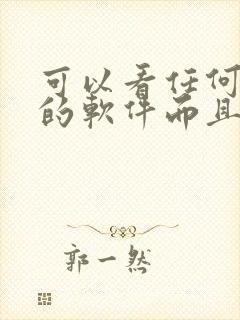 可以看任何
的軟件而且
郭一然